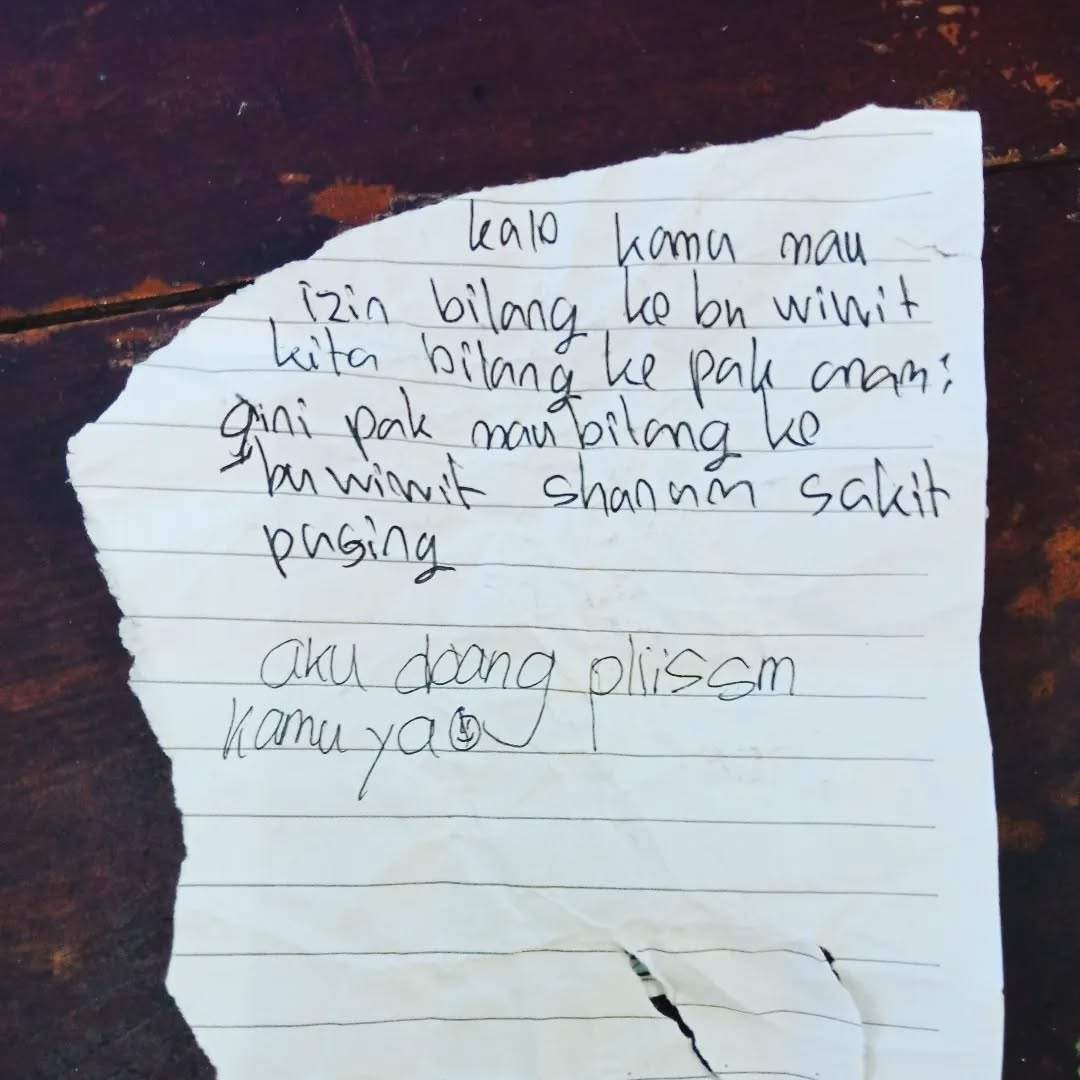 kalo kamu mau
izin bilang ke bu wiwit
kita bilang ke pak anam:
gini pak mau bilang ke
bu wiwit shanum sakit
pusing
aku doang pliissm
kamu ya